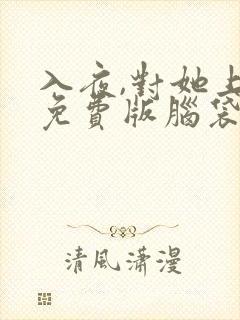 入夜,對她上
免費版腦袋
清風瀟漫